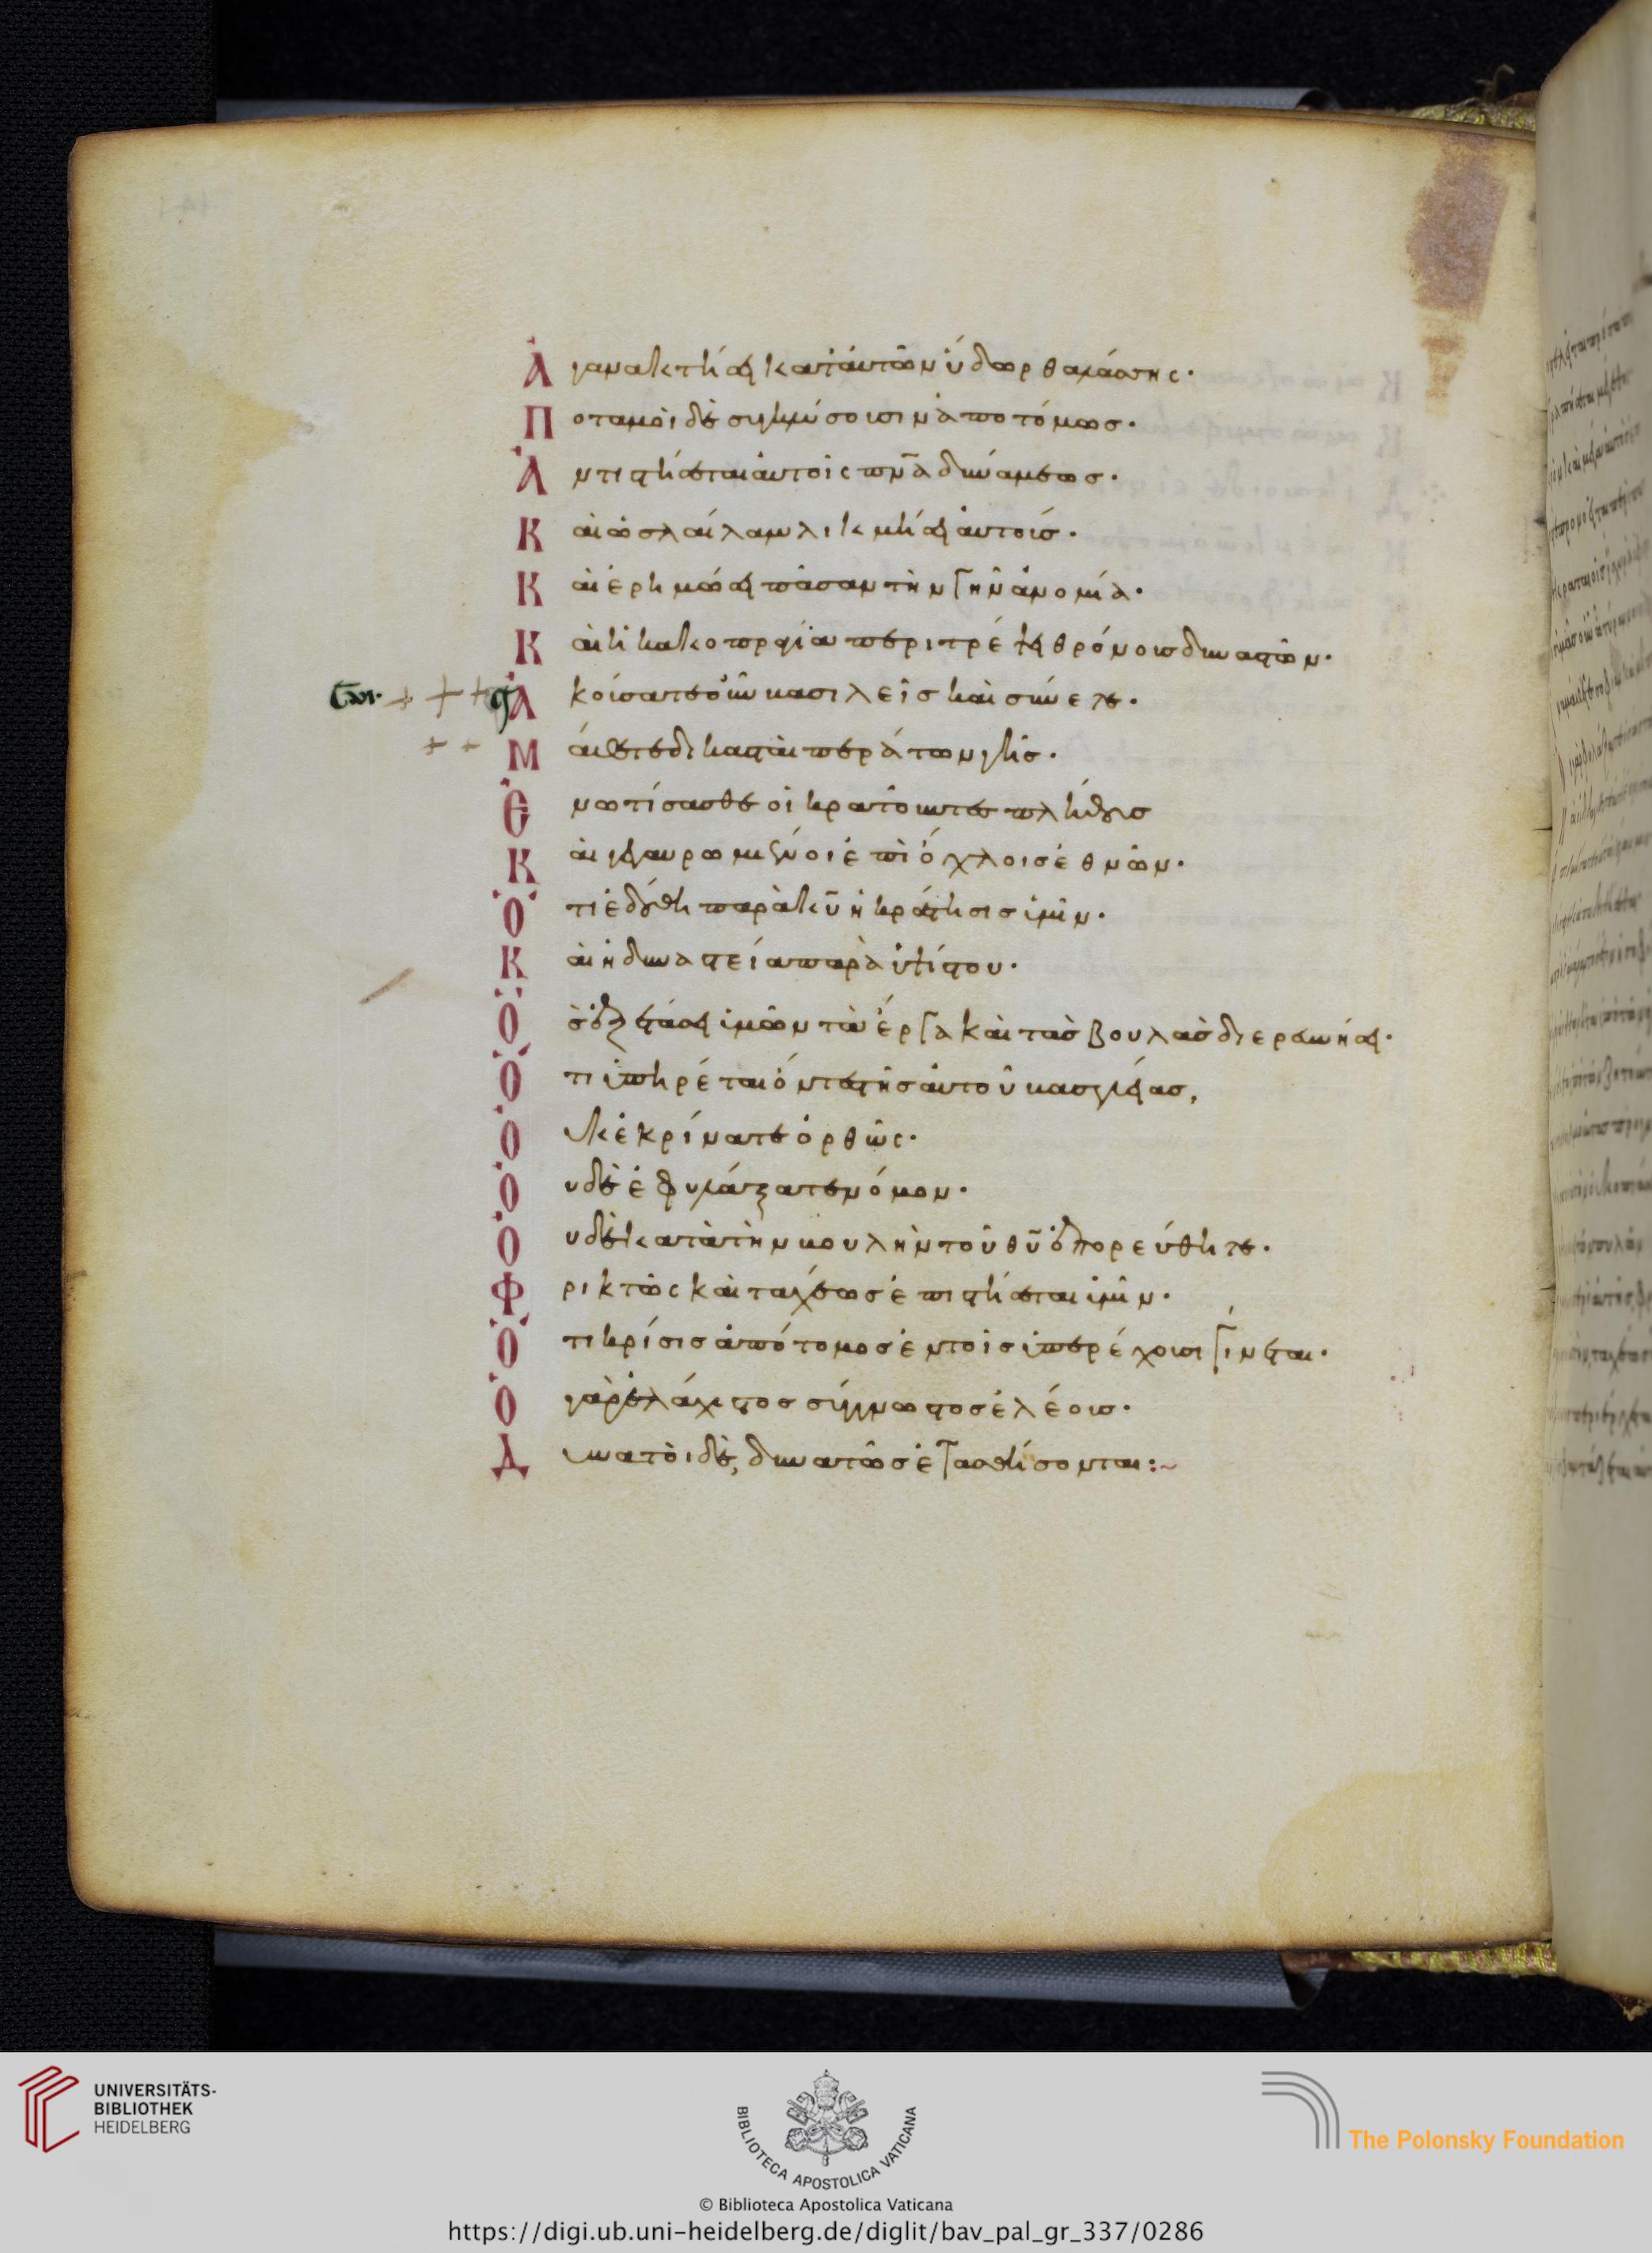 Ἀγανακτήσει κατ' αὐτῶν ὕδωρ θαλάσσης·
Ποταμοὶ δὲ συγκλύσουσιν ἀποτόμως·
Ἀντιστήσεται αὐτοῖς πν̅α δυνάμεως·
Καὶ ὡς λαίλαψ λικμήσει αὐτούς·
Καὶ ἐρημώσει πᾶσαν τὴν γῆν ἀνομία·
Καὶ ἡ κακοπραγία περιτρέψει θρόνους δυναστῶν·
Ἀκούσατε οὖν βασιλεῖς καὶ σύνετε·
Μάθετε δικασταὶ περάτων γῆς·
Ἐνωτίσασθε οἱ κρατοῦντες πλήθους
Καὶ γεγαυρωμένοι ἐπὶ ὄχλοις ἐθνῶν·
Ὅτι ἐδόθη παρὰ κυ̅ ἡ κράτησις ὑμῖν·
Καὶ ἡ δυναστεία παρὰ ὑψίστου·
Ὃς ἐξετάσει ὑμῶν τὰ ἔργα καὶ τὰς βουλὰς διερευνήσει·
Ὅτι ὑπηρέται ὄντες τῆς αὐτοῦ βασιλείας,
Οὐκ ἐκρίνατε ὀρθῶς·
Οὐδὲ ἐφυλάξατε νόμον·
Οὐδὲ κατὰ τὴν βουλὴν τοῦ θυ̅ ἐπορεύθητε·
Φρικτῶς καὶ ταχέως ἐπιστήσεται ὑμῖν·
Ὅτι κρίσις ἀπότομος ἐν τοῖς ὑπερέχουσι γίνεται·
Ὁ γὰρ ἐλάχιστος σύγγνωστος ἐλέους·
Δυνατοὶ δὲ, δυνατῶς ἐτασθήσονται:~
UNIVERSITÄTS-
BIBLIOTHEK
HEIDELBERG
BIBLIOTECA APOSTOLICA VATICANA
© Biblioteca Apostolica Vaticana
The Polonsky Foundation
https://digi.ub.uni-heidelberg.de/diglit/bav_pal_gr_337/0286